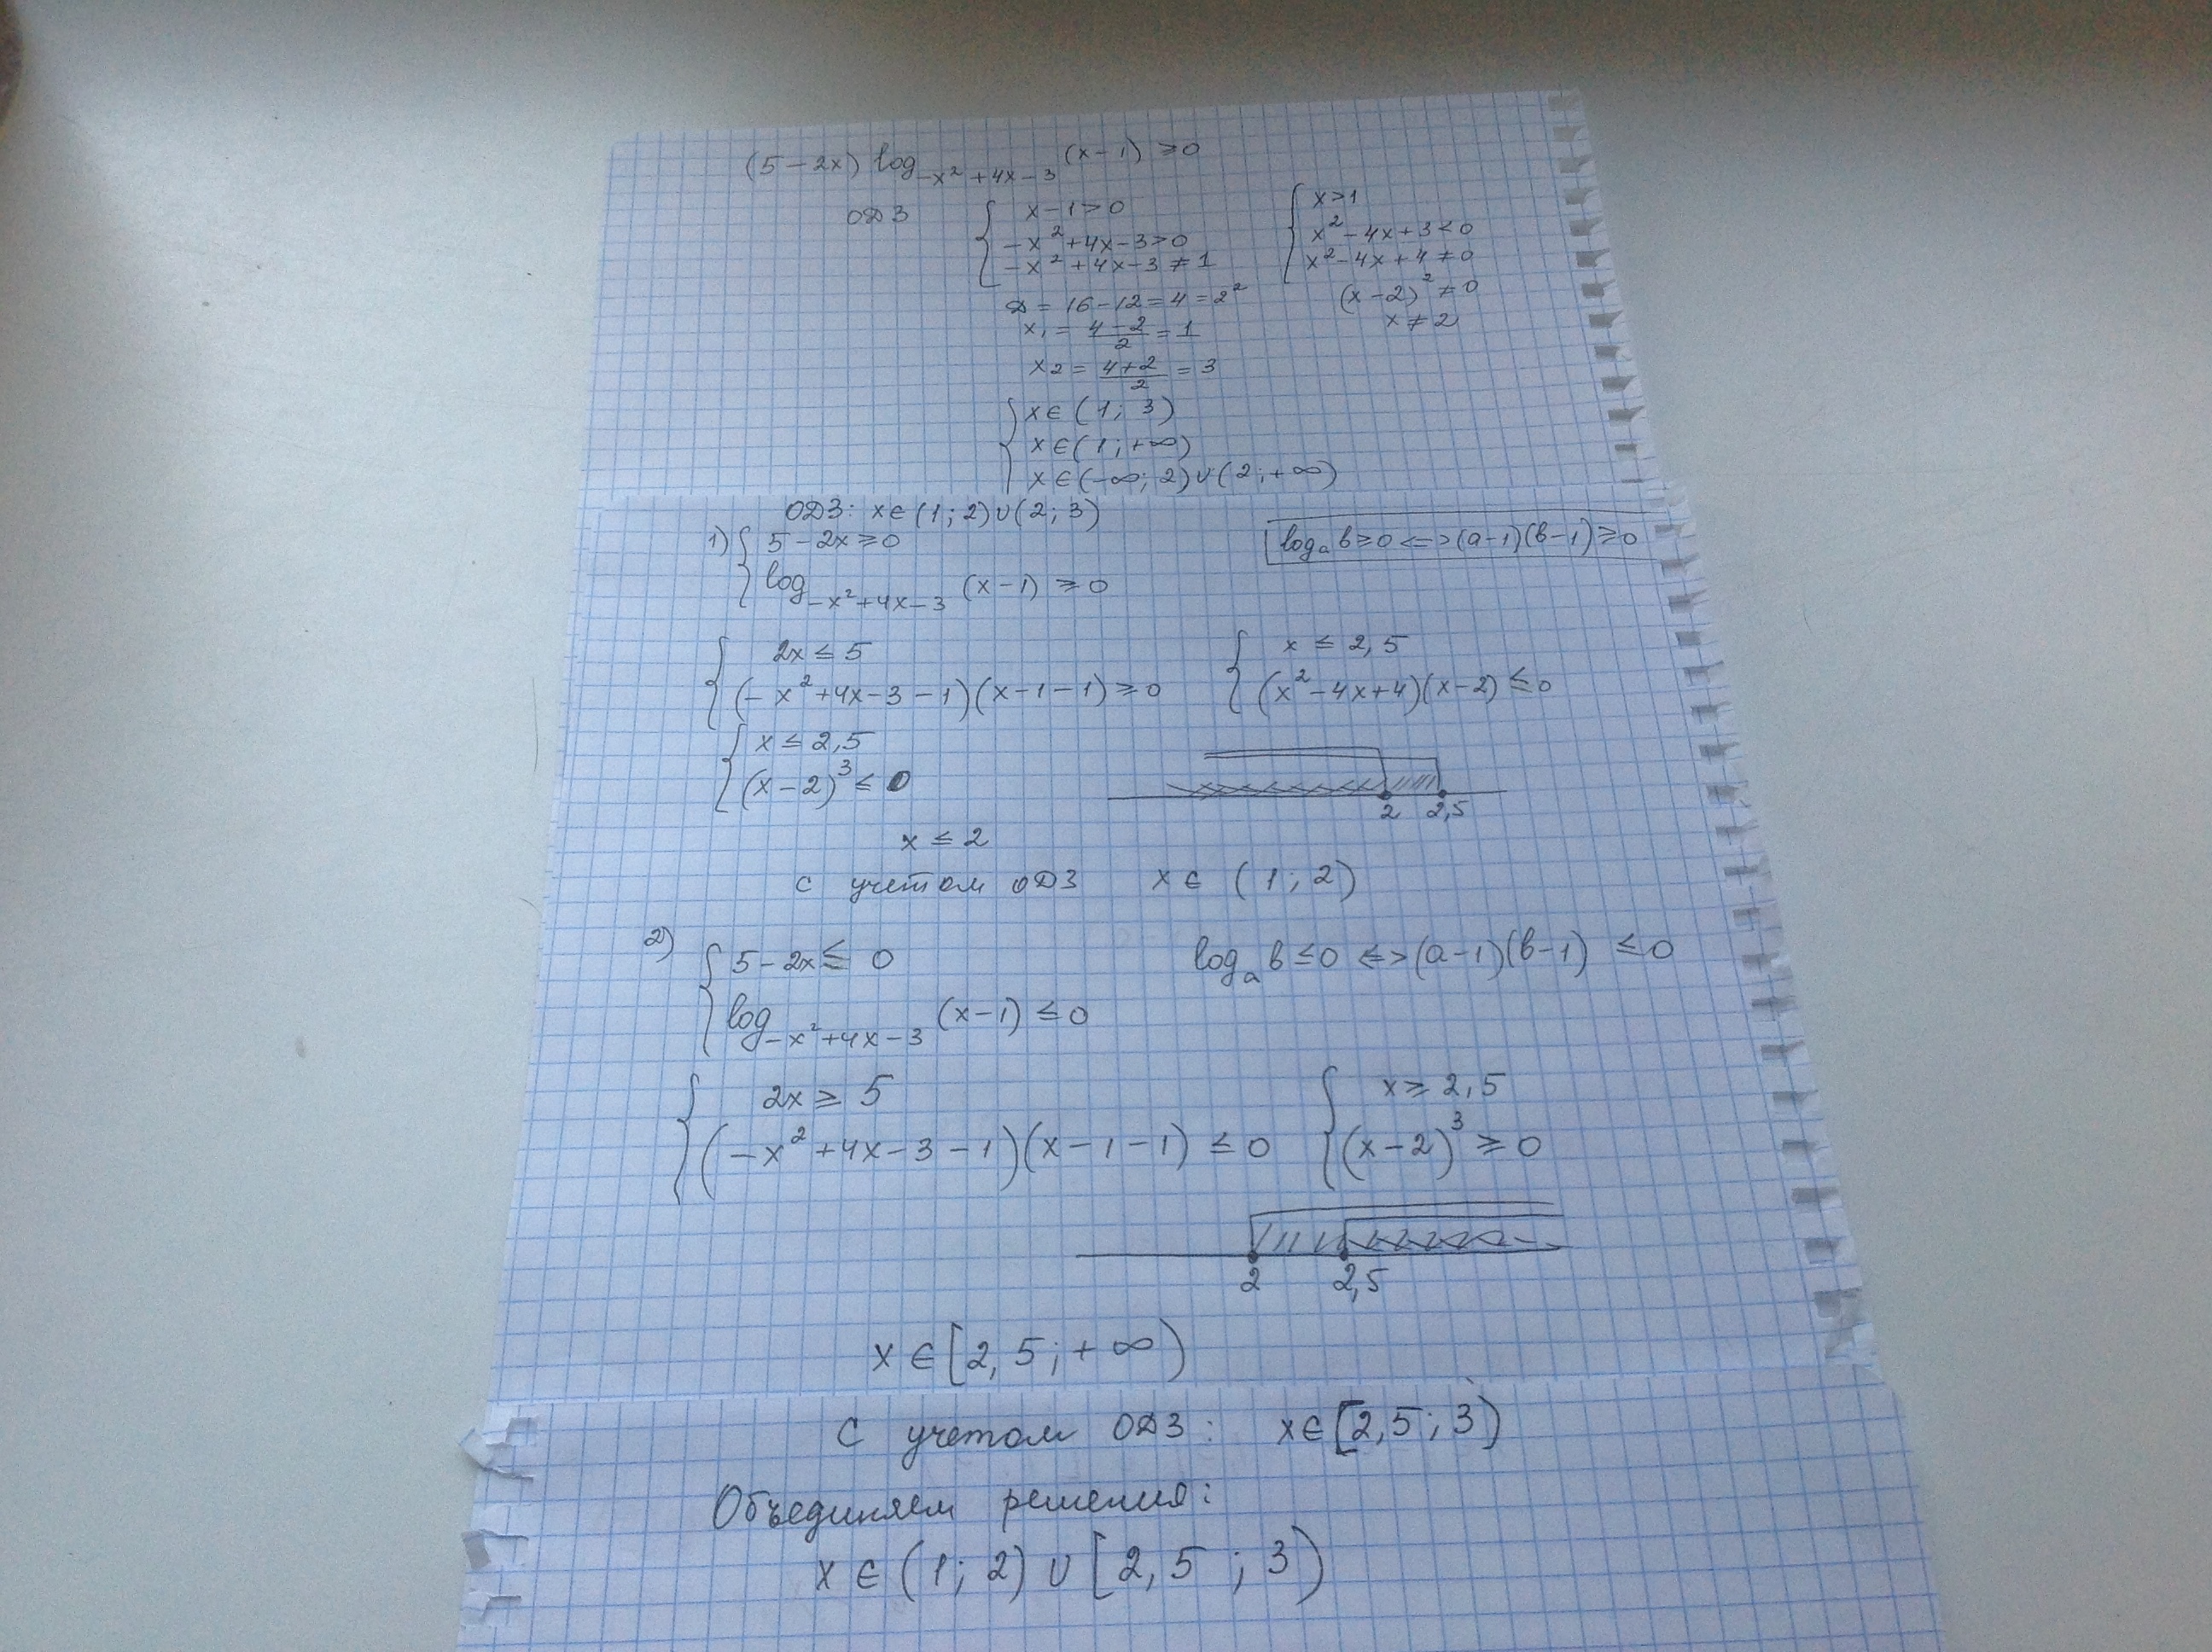 (5-2x) log_{-x²+4x-3} (x-1) ≥0
ОДЗ { x-1>0 { x>1
-x²+4x-3>0 x²-4x+3<0
-x²+4x-3≠1 x²-4x+4≠0
D=16-12=4=2² (x-2)²≠0
x₁=\frac{4-2}{2}=1 x≠2
x₂=\frac{4+2}{2}=3
{ x∈(1; 3)
x∈(1;+∞)
x∈(-∞; 2)∪(2;+∞)
ОДЗ: x∈(1; 2)∪(2; 3)
1) { 5-2x≥0 logₐ b≥0 <=>(a-1)(b-1)≥0
log_{-x²+4x-3} (x-1) ≥0
{ 2x≤5 { x ≤ 2,5
(-x²+4x-3-1)(x-1-1)≥0 (x²-4x+4)(x-2)≤0
{ x≤2,5
(x-2)³≤0
2 2,5
x≤2
с учетом ОДЗ x∈ (1; 2)
2) { 5-2x≤0 logₐ b≤0 <=>(a-1)(b-1) ≤0
log_{-x²+4x-3} (x-1)≤0
{ 2x≥5 { x≥2,5
(-x²+4x-3-1)(x-1-1) ≤0 (x-2)³≥0
2 2,5
x∈[2,5;+∞)
С учетом ОДЗ: x∈[2,5; 3)
Объединяем решения:
x∈(1; 2)∪[2,5 ; 3)